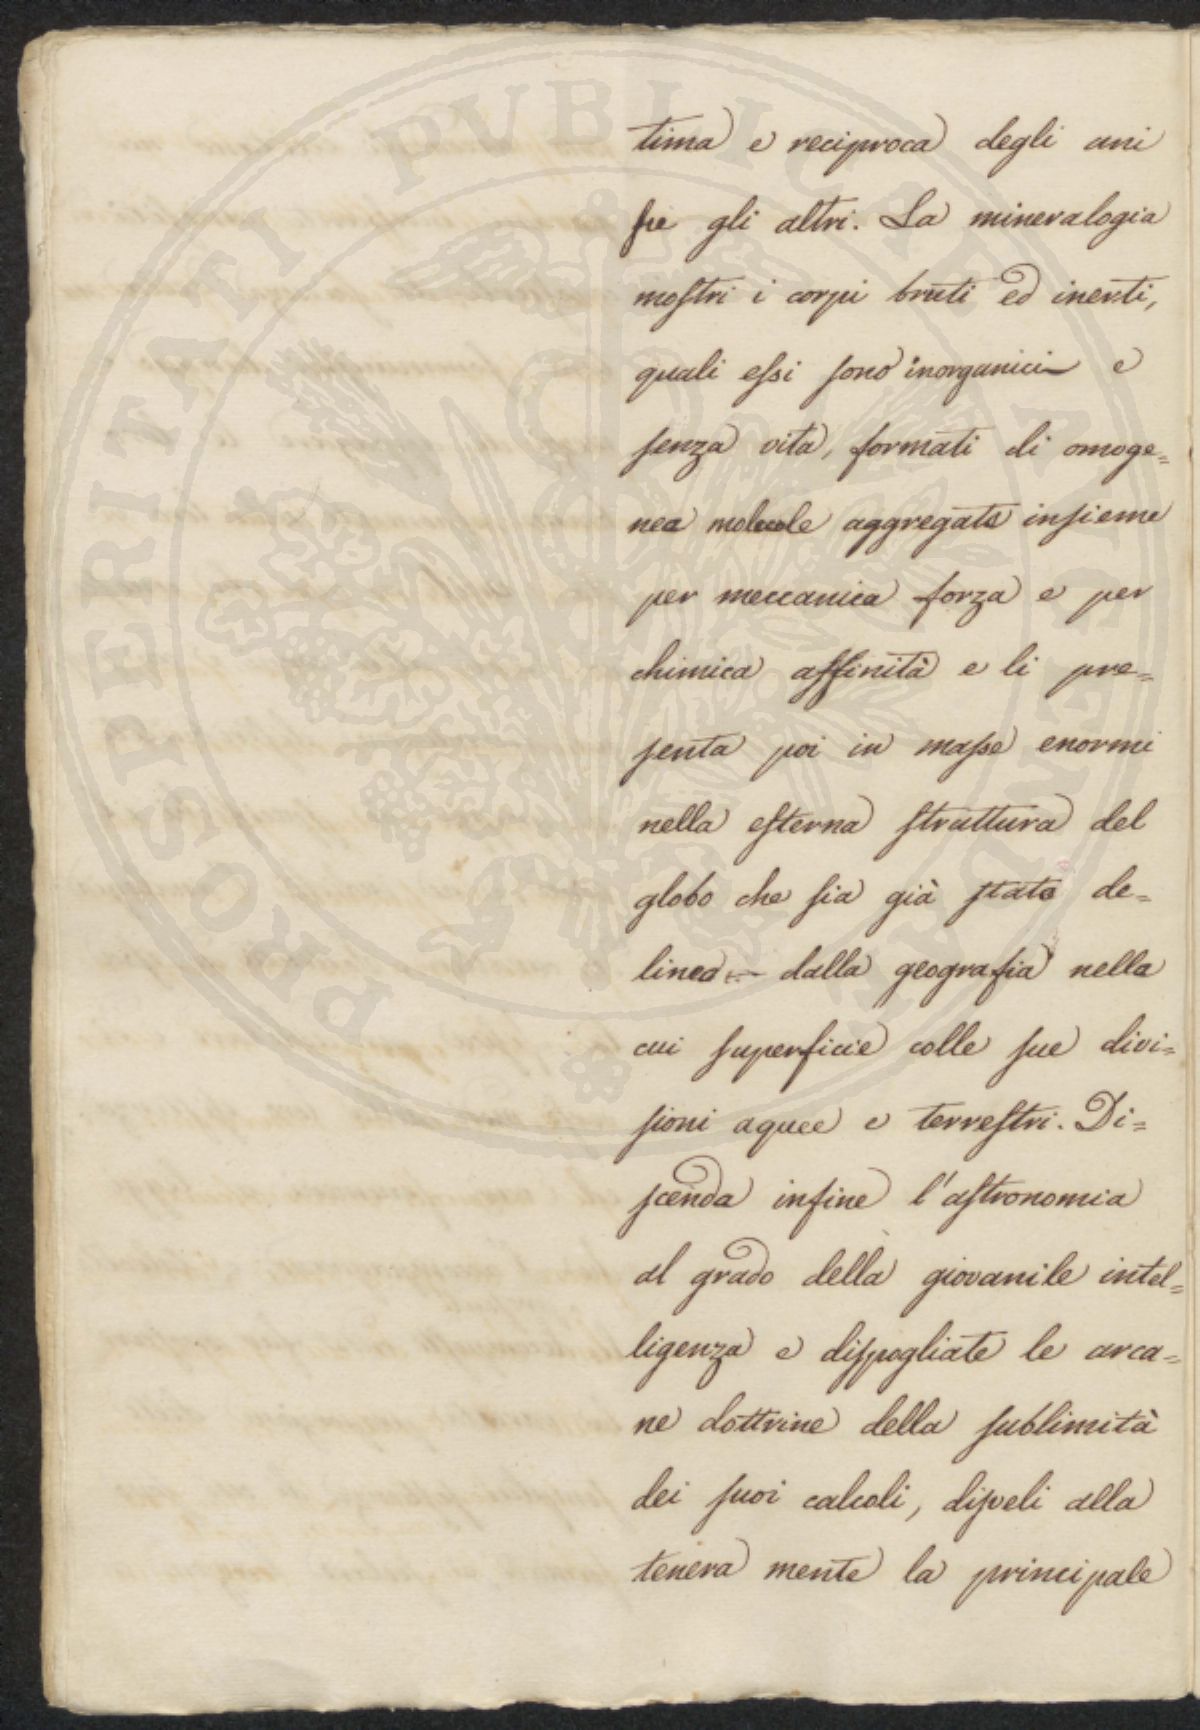 tima e reciproca degli uni
fre gli altri. La mineralogia
mostri i corpi bruti ed inerti,
quali essi sono inorganici e
senza vita, formati di omoge=
nee molecole aggregate insieme
per meccanica forza e per
chimica affinità e li pre=
senta poi in masse enormi
nella esterna struttura del
globo che sia già stato de=
linea dalla geografia nella
cui superficie colle sue divi=
sioni aquee e terrestri. Di=
scenda infine l'astronomia
al grado della giovanile intel=
ligenza e dispogliate le arca=
ne dottrine della sublimità
dei suoi calcoli, disveli alla
tenera mente la principale
PROSPERITATI PVBLICAE AVGENDAE